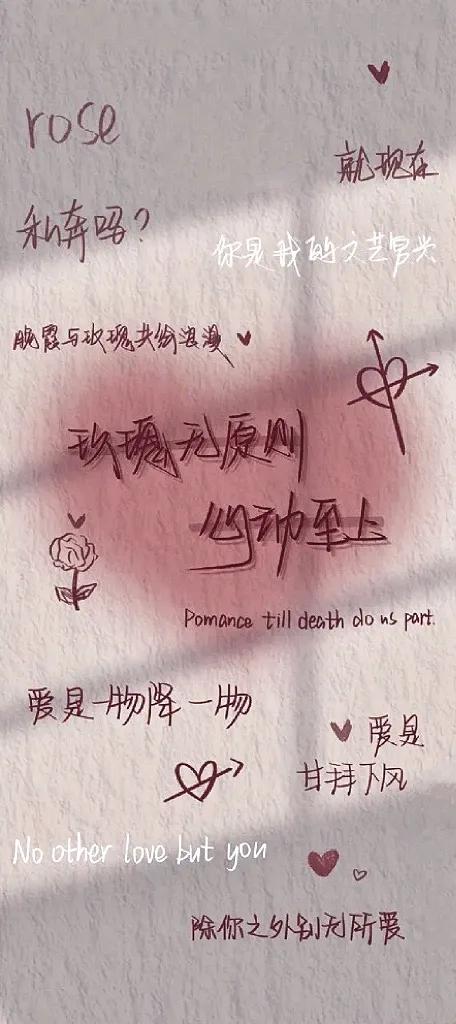 rose
就现在
私奔吗?
你是我的文艺复兴
晚霞与玫瑰共纷浪漫
玫瑰无原则
心动至上
Pomance till death do us part.
爱是一物降一物
爱是
甘拜下风
No other love but you
除你之外别无所爱